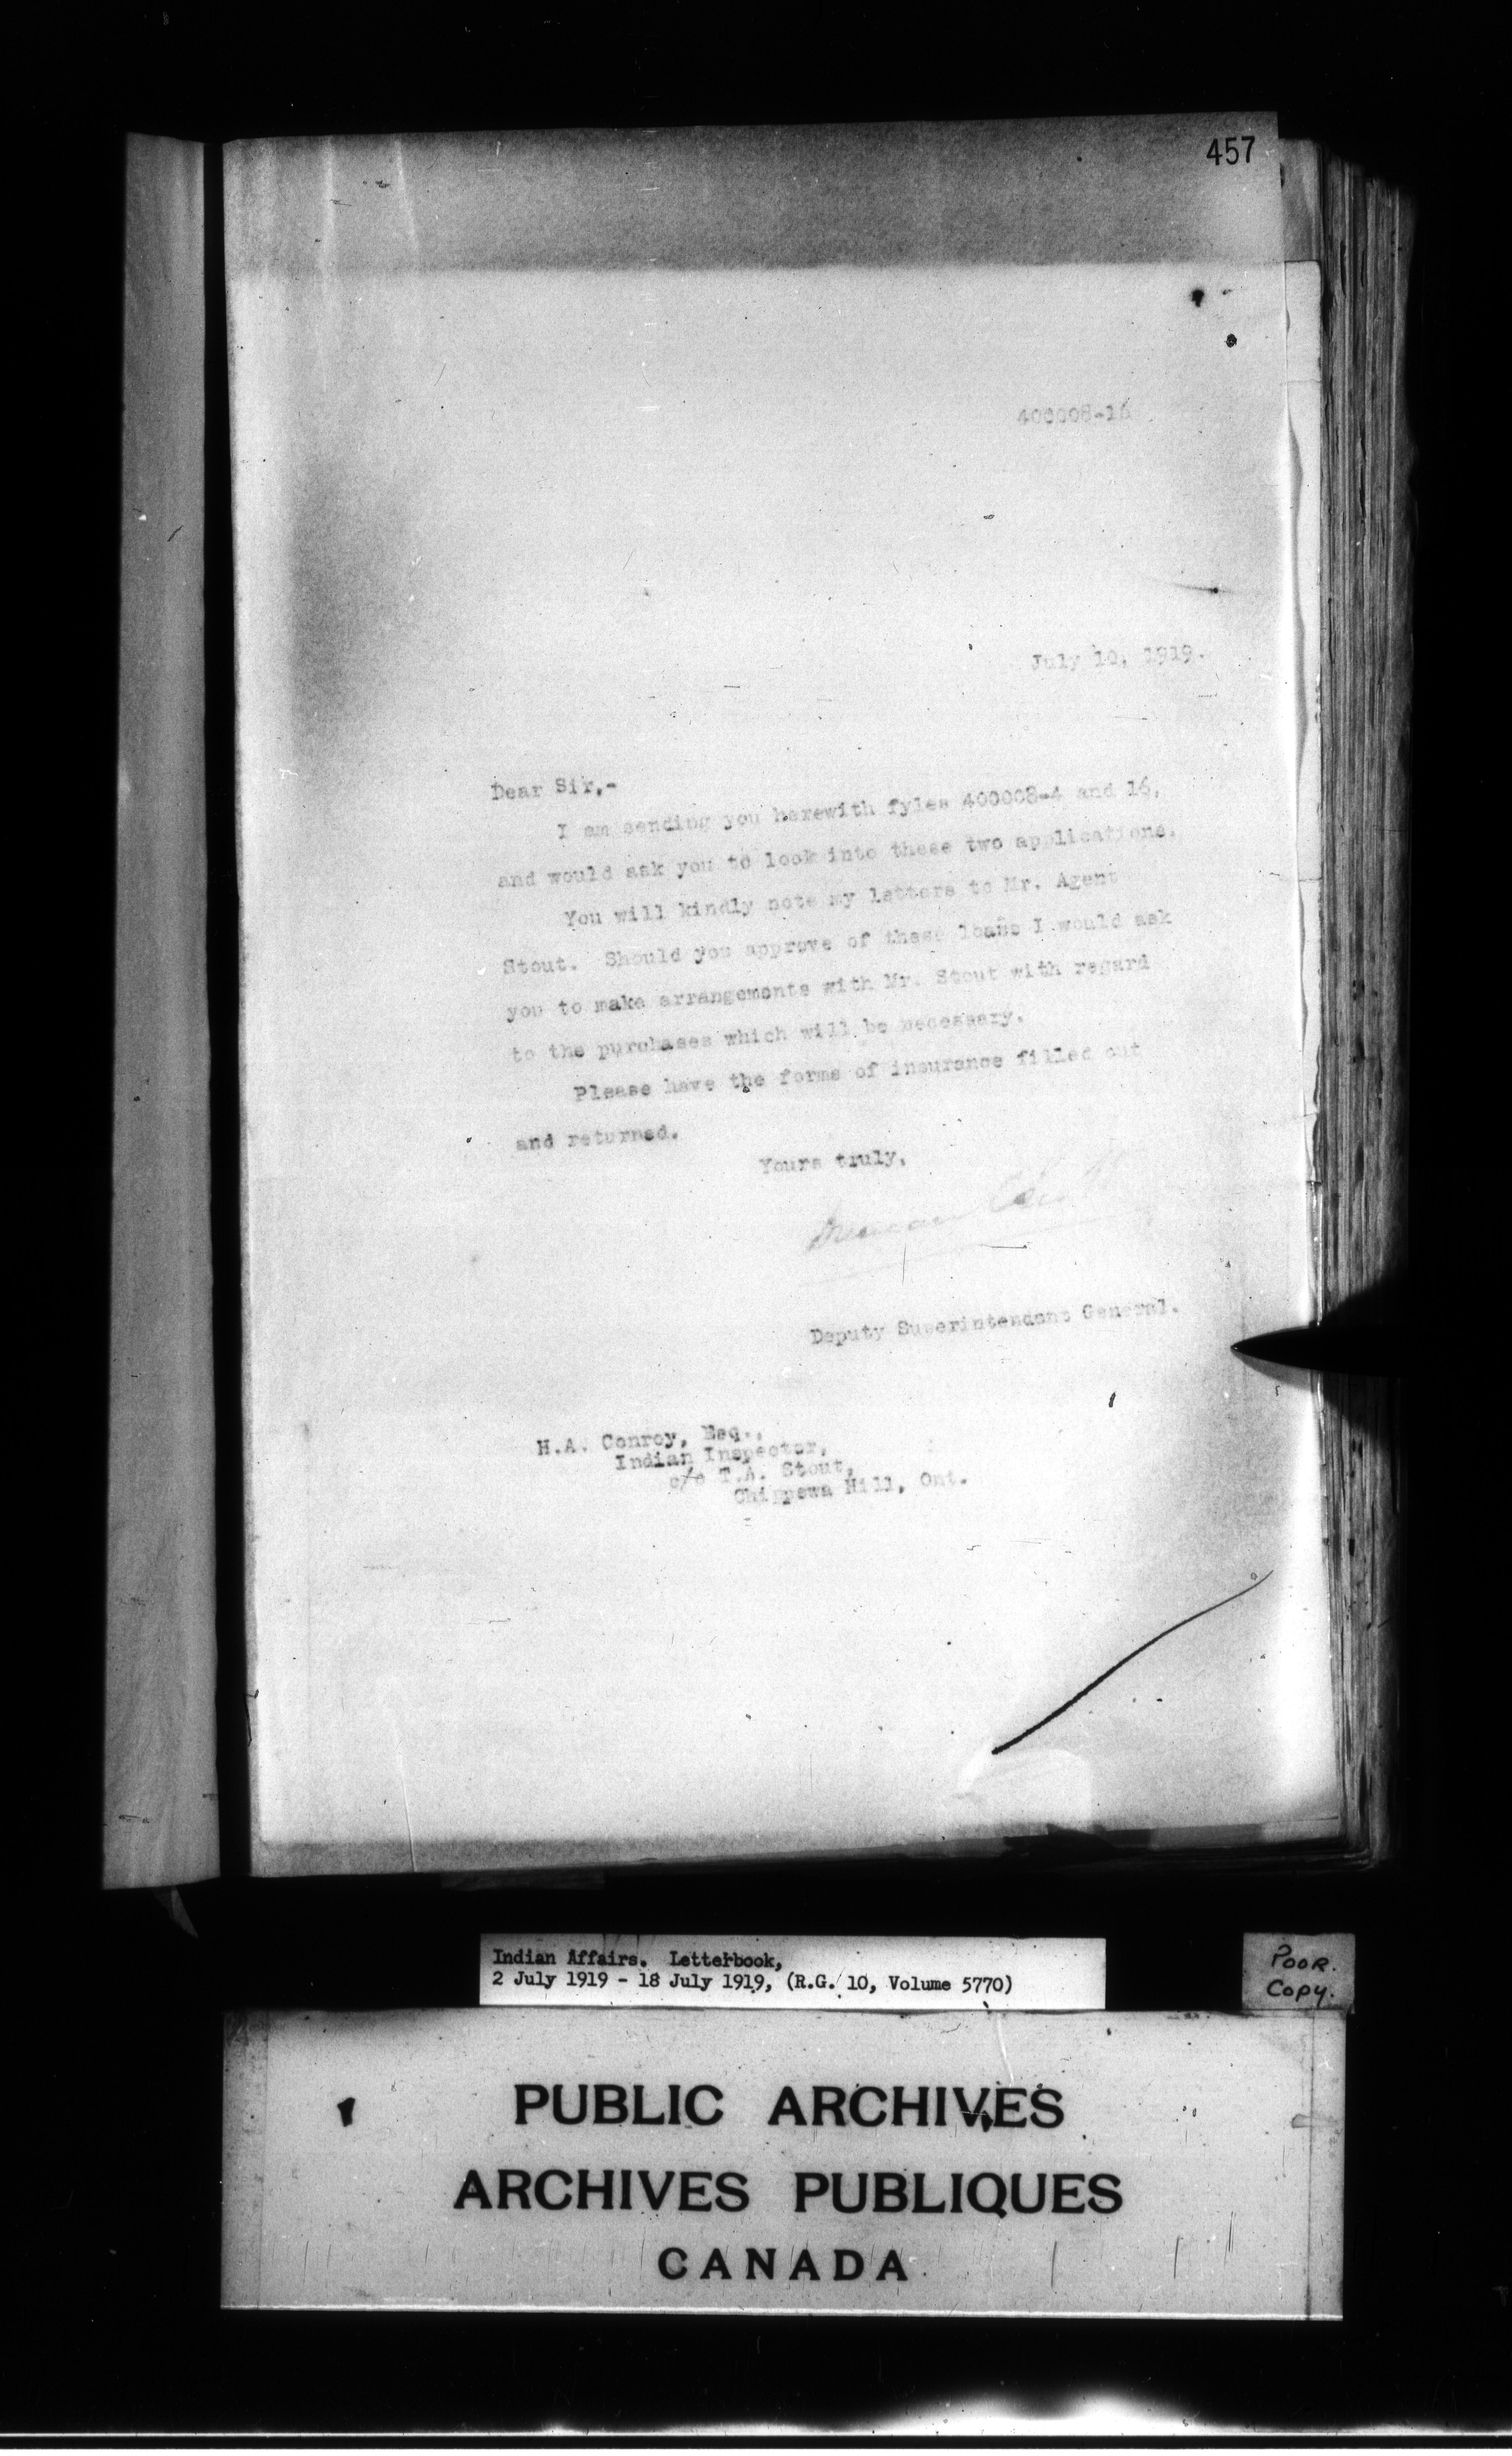 457
400008-16
July 10, 1919.
Dear Sir,-
I am sending you herewith fyles 400008-4 and 16,
and would ask you to look into these two applications.
You will kindly note my letters to Mr. Agent
Stout. Should you approve of these loans I would ask
you to make arrangements with Mr. Stout with regard
to the purchases which will be necessary.
Please have the forms of insurance filled out
and returned.
Yours truly,
Deputy Superintendent General.
H.A. Conroy, Esq.,
Indian Inspector,
c/o T.A. Stout,
Chippewa Hill, Ont.
Indian Affairs. Letterbook,
2 July 1919 - 18 July 1919, (R.G. 10, Volume 5770)
POOR.
COPY.
PUBLIC ARCHIVES
ARCHIVES PUBLIQUES
CANADA